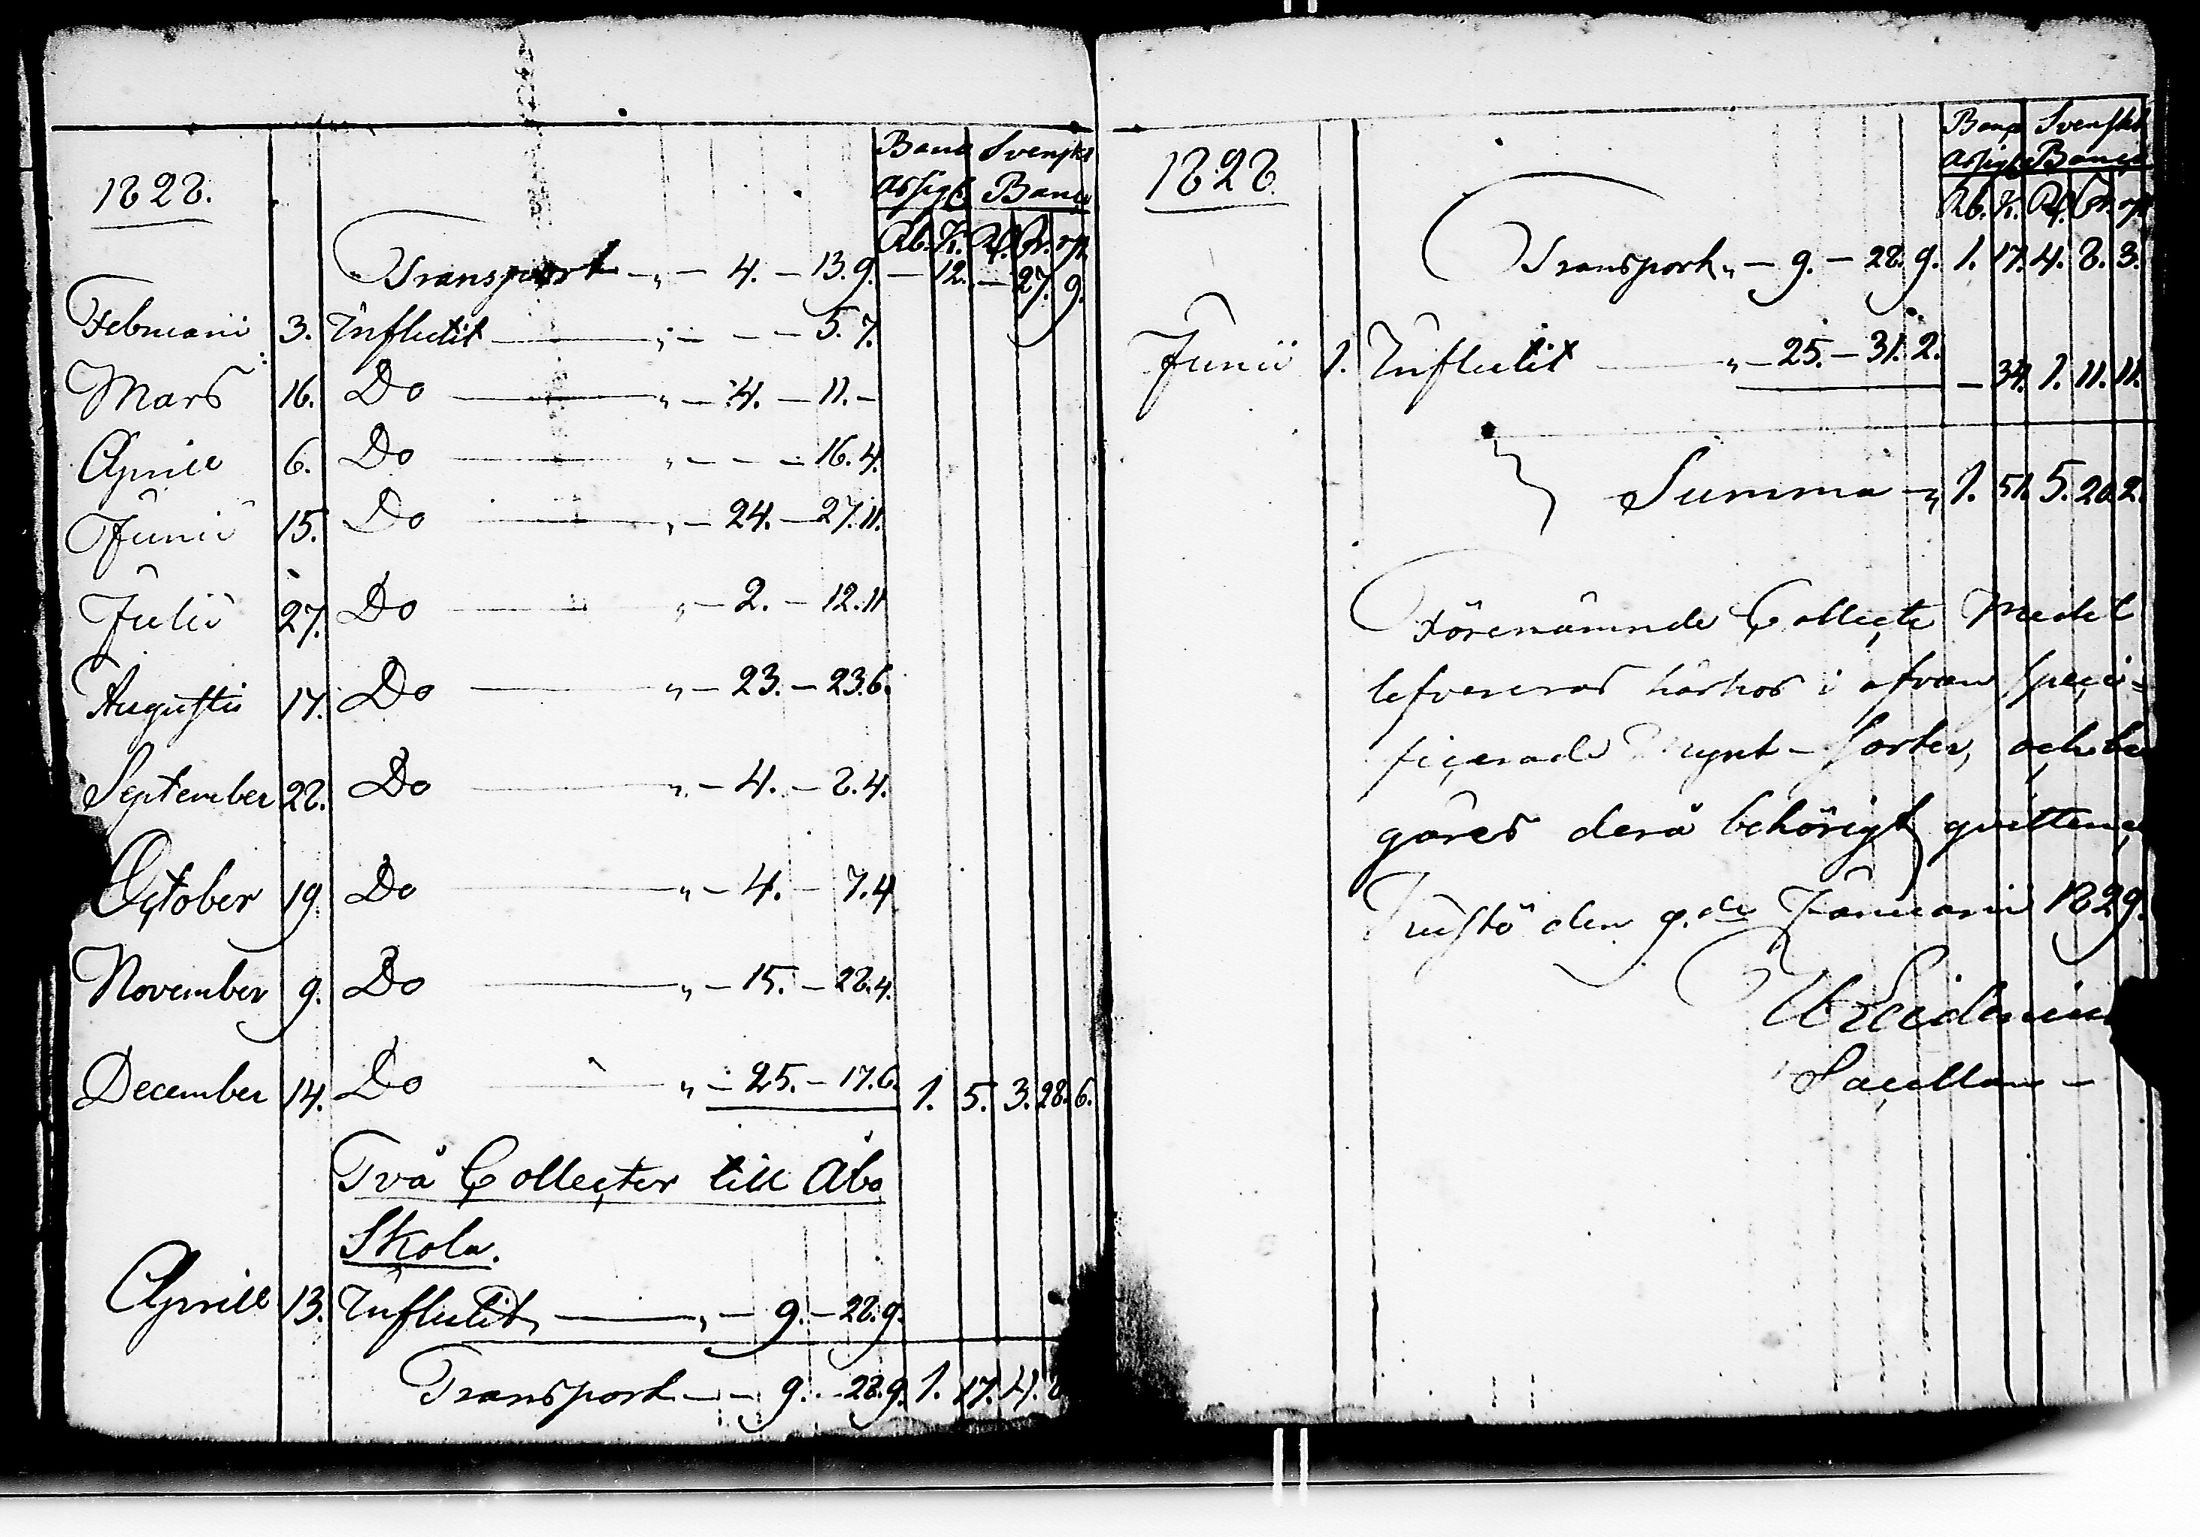 1828.
Banc Svenskt
Assign Banco
Rb. K. Rd. sk. rs.
Transport „ — 4. — 13. 9. — 12. — 27. 9.
Februarii 3. Influtit „ — — — 5. 7.
Mars 16. Do „ — 4. — 11. —
Aprill 6. Do „ — — — 16. 4.
Junii 15. Do „ — 24. — 27. 11.
Julii 27. Do „ — 2. — 12. 11
Augusti 17. Do „ — 23. — 23. 6.
September 28. Do „ — 4. — 8. 4.
October 19 Do „ — 4. — 7. 4
November 9. Do „ — 15. — 28. 4.
December 14. Do „ — 25. — 17. 6. 1. 5. 3. 28. 6.
Två Collecter till Åbo
Skola.
Aprill 13. Influtit, „ — 9. — 28. 9.
Transport — — 9. — 28. 9. 1. 17. 4. 8
1828.
Banc Svenskt
Assign Banco
Rb. K. Rd. sk. rs.
Transport „ — 9. — 28. 9. 1. 17. 4. 8. 3.
Junii 1. Influtit „ — 25. — 31. 2. — 34. 1. 11. 11.
Summa — „ 1. 51. 5. 20. 2.
Förenämnde Collecte Medel
lefvereras härhos i ofvan speci-
ficerade Mynt-sorter, och be
gäres derå behörigt qvittence
den 9.de Januarii 1829.
Sacellan —